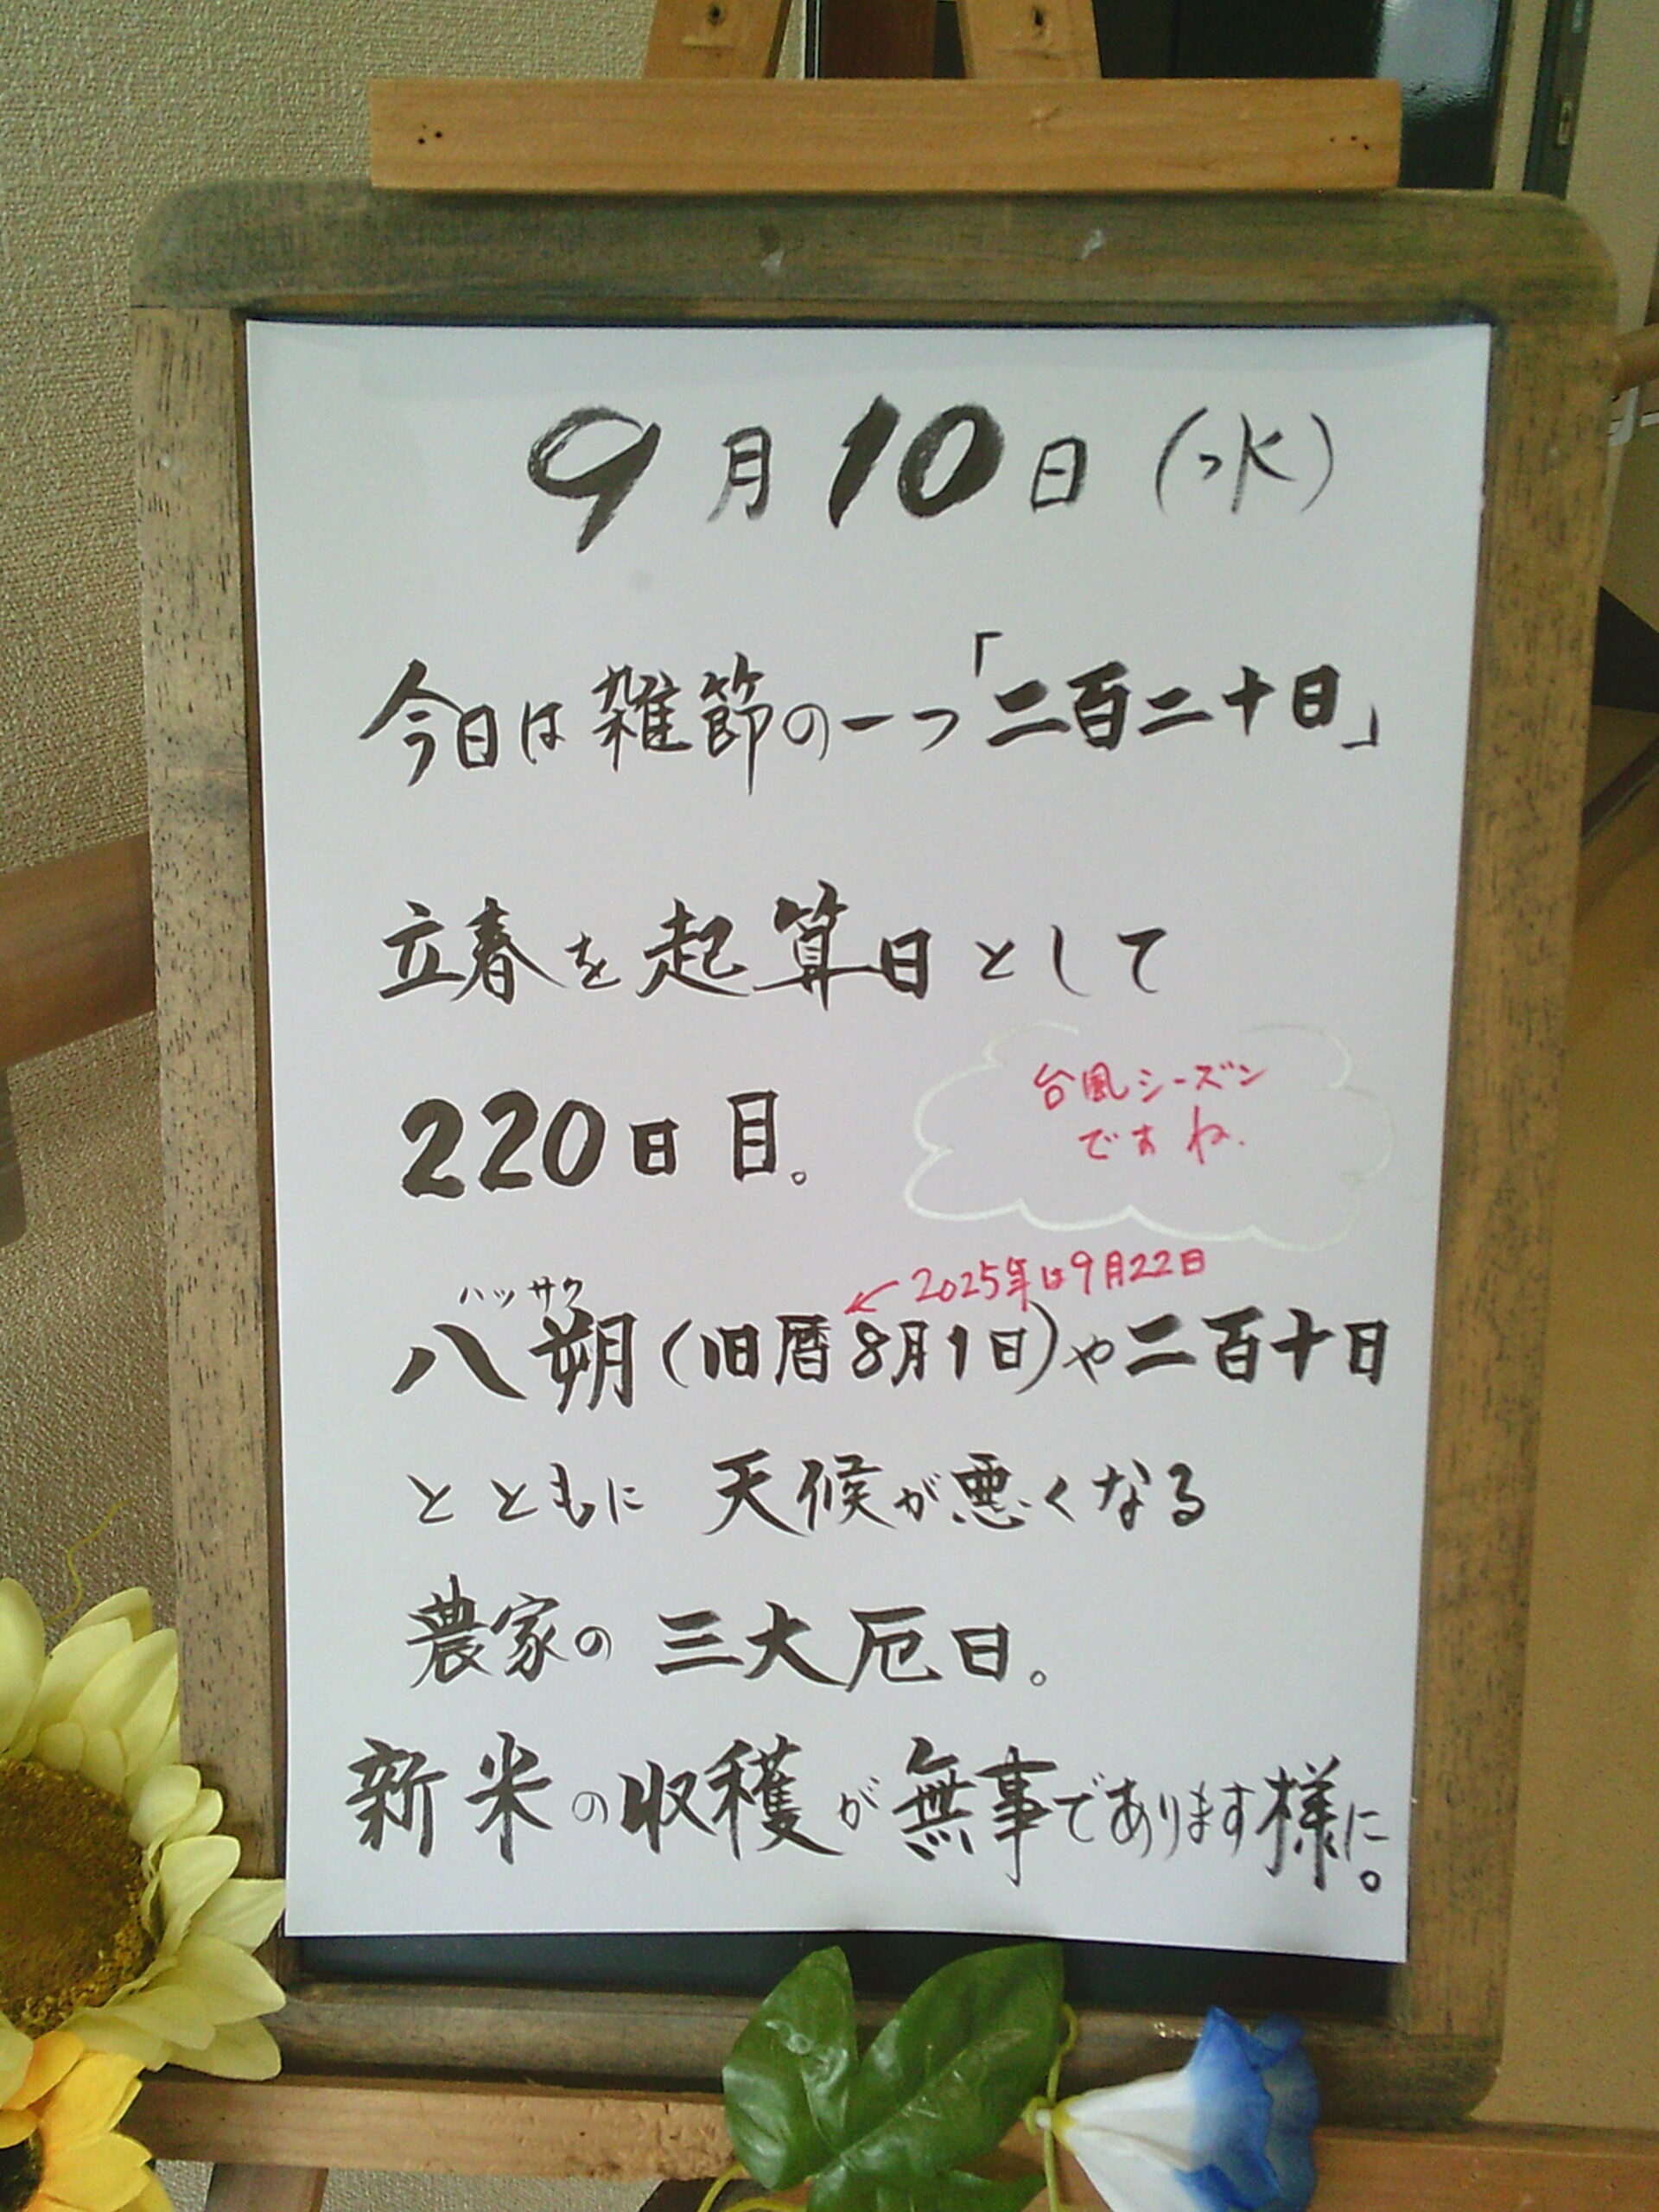 9月10日(水)
今日は雑節の一つ「二百二十日」
立春を起算日として
220日目。
台風シーズン
ですね.
2025年は9月22日
ハッサク
八朔(旧暦8月1日)や二百十日
とともに 天候が悪くなる
農家の三大厄日。
新米の収穫が無事であります様に。